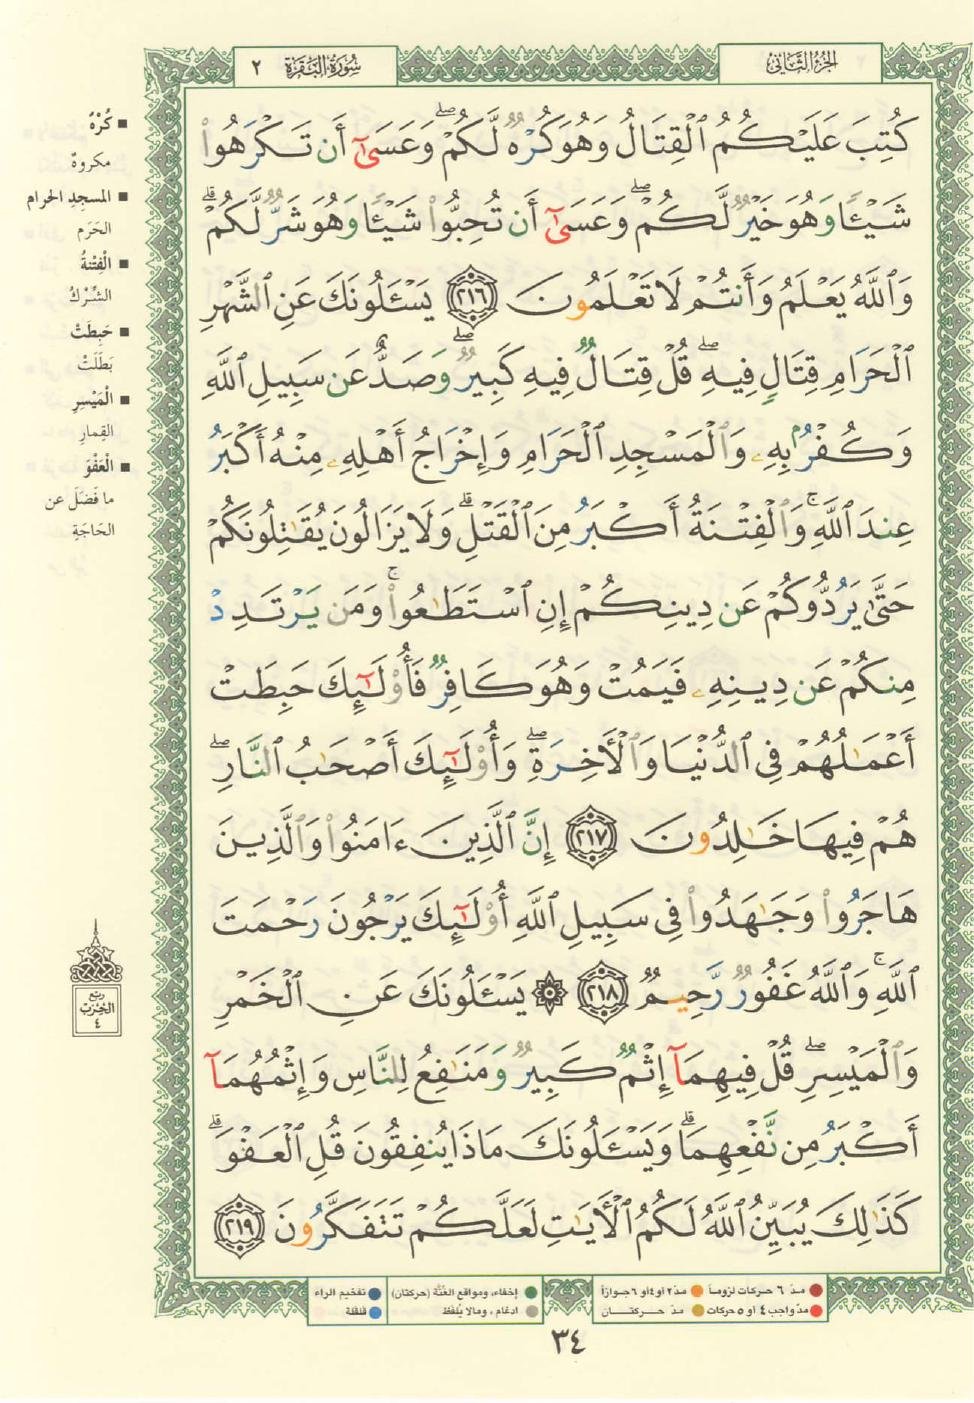 الجزء الثاني
سورة البقرة ٢
كُتِبَ عَلَيْكُمُ ٱلْقِتَالُ وَهُوَ كُرْهٌ لَّكُمْ ۖ وَعَسَىٰٓ أَن تَكْرَهُوا۟
شَيْـًٔا وَهُوَ خَيْرٌ لَّكُمْ ۖ وَعَسَىٰٓ أَن تُحِبُّوا۟ شَيْـًٔا وَهُوَ شَرٌّ لَّكُمْ ۗ
وَٱللَّهُ يَعْلَمُ وَأَنتُمْ لَا تَعْلَمُونَ ٢١٦ يَسْـَٔلُونَكَ عَنِ ٱلشَّهْرِ
ٱلْحَرَامِ قِتَالٍ فِيهِ ۖ قُلْ قِتَالٌ فِيهِ كَبِيرٌ ۖ وَصَدٌّ عَن سَبِيلِ ٱللَّهِ
وَكُفْرٌۢ بِهِۦ وَٱلْمَسْجِدِ ٱلْحَرَامِ وَإِخْرَاجُ أَهْلِهِۦ مِنْهُ أَكْبَرُ
عِندَ ٱللَّهِ ۚ وَٱلْفِتْنَةُ أَكْبَرُ مِنَ ٱلْقَتْلِ ۗ وَلَا يَزَالُونَ يُقَـٰتِلُونَكُمْ
حَتَّىٰ يَرُدُّوكُمْ عَن دِينِكُمْ إِنِ ٱسْتَطَـٰعُوا۟ ۚ وَمَن يَرْتَدِدْ
مِنكُمْ عَن دِينِهِۦ فَيَمُتْ وَهُوَ كَافِرٌ فَأُو۟لَـٰٓئِكَ حَبِطَتْ
أَعْمَـٰلُهُمْ فِى ٱلدُّنْيَا وَٱلْـَٔاخِرَةِ ۖ وَأُو۟لَـٰٓئِكَ أَصْحَـٰبُ ٱلنَّارِ ۖ
هُمْ فِيهَا خَـٰلِدُونَ ٢١٧ إِنَّ ٱلَّذِينَ ءَامَنُوا۟ وَٱلَّذِينَ
هَاجَرُوا۟ وَجَـٰهَدُوا۟ فِى سَبِيلِ ٱللَّهِ أُو۟لَـٰٓئِكَ يَرْجُونَ رَحْمَتَ
ٱللَّهِ ۚ وَٱللَّهُ غَفُورٌ رَّحِيمٌ ٢١٨ ۞ يَسْـَٔلُونَكَ عَنِ ٱلْخَمْرِ
وَٱلْمَيْسِرِ ۖ قُلْ فِيهِمَآ إِثْمٌ كَبِيرٌ وَمَنَـٰفِعُ لِلنَّاسِ وَإِثْمُهُمَآ
أَكْبَرُ مِن نَّفْعِهِمَا ۗ وَيَسْـَٔلُونَكَ مَاذَا يُنفِقُونَ قُلِ ٱلْعَفْوَ ۗ
كَذَٰلِكَ يُبَيِّنُ ٱللَّهُ لَكُمُ ٱلْـَٔايَـٰتِ لَعَلَّكُمْ تَتَفَكَّرُونَ ٢١٩
■ كُرْهٌ
مكروهٌ
■ المسجِدِ الحرام
الحَرَم
■ الْفِتْنةُ
الشِّرْكُ
■ حَبِطَتْ
بَطَلَتْ
■ الْمَيْسِرِ
القِمارِ
■ الْعَفْوَ
ما فَضَلَ عن
الحَاجَةِ
ربع
الحزب
٤
مدّ ٦ حركات لزوماً
مدّ٢ أو٤أو ٦جوازاً
إخفاء، ومواقع الغُنَّة (حركتان)
تفخيم الراء
مدّ واجب ٤ أو ٥ حركات
مدّ حركتان
ادغام، ومالا يُلفَظ
قلقلة
٣٤